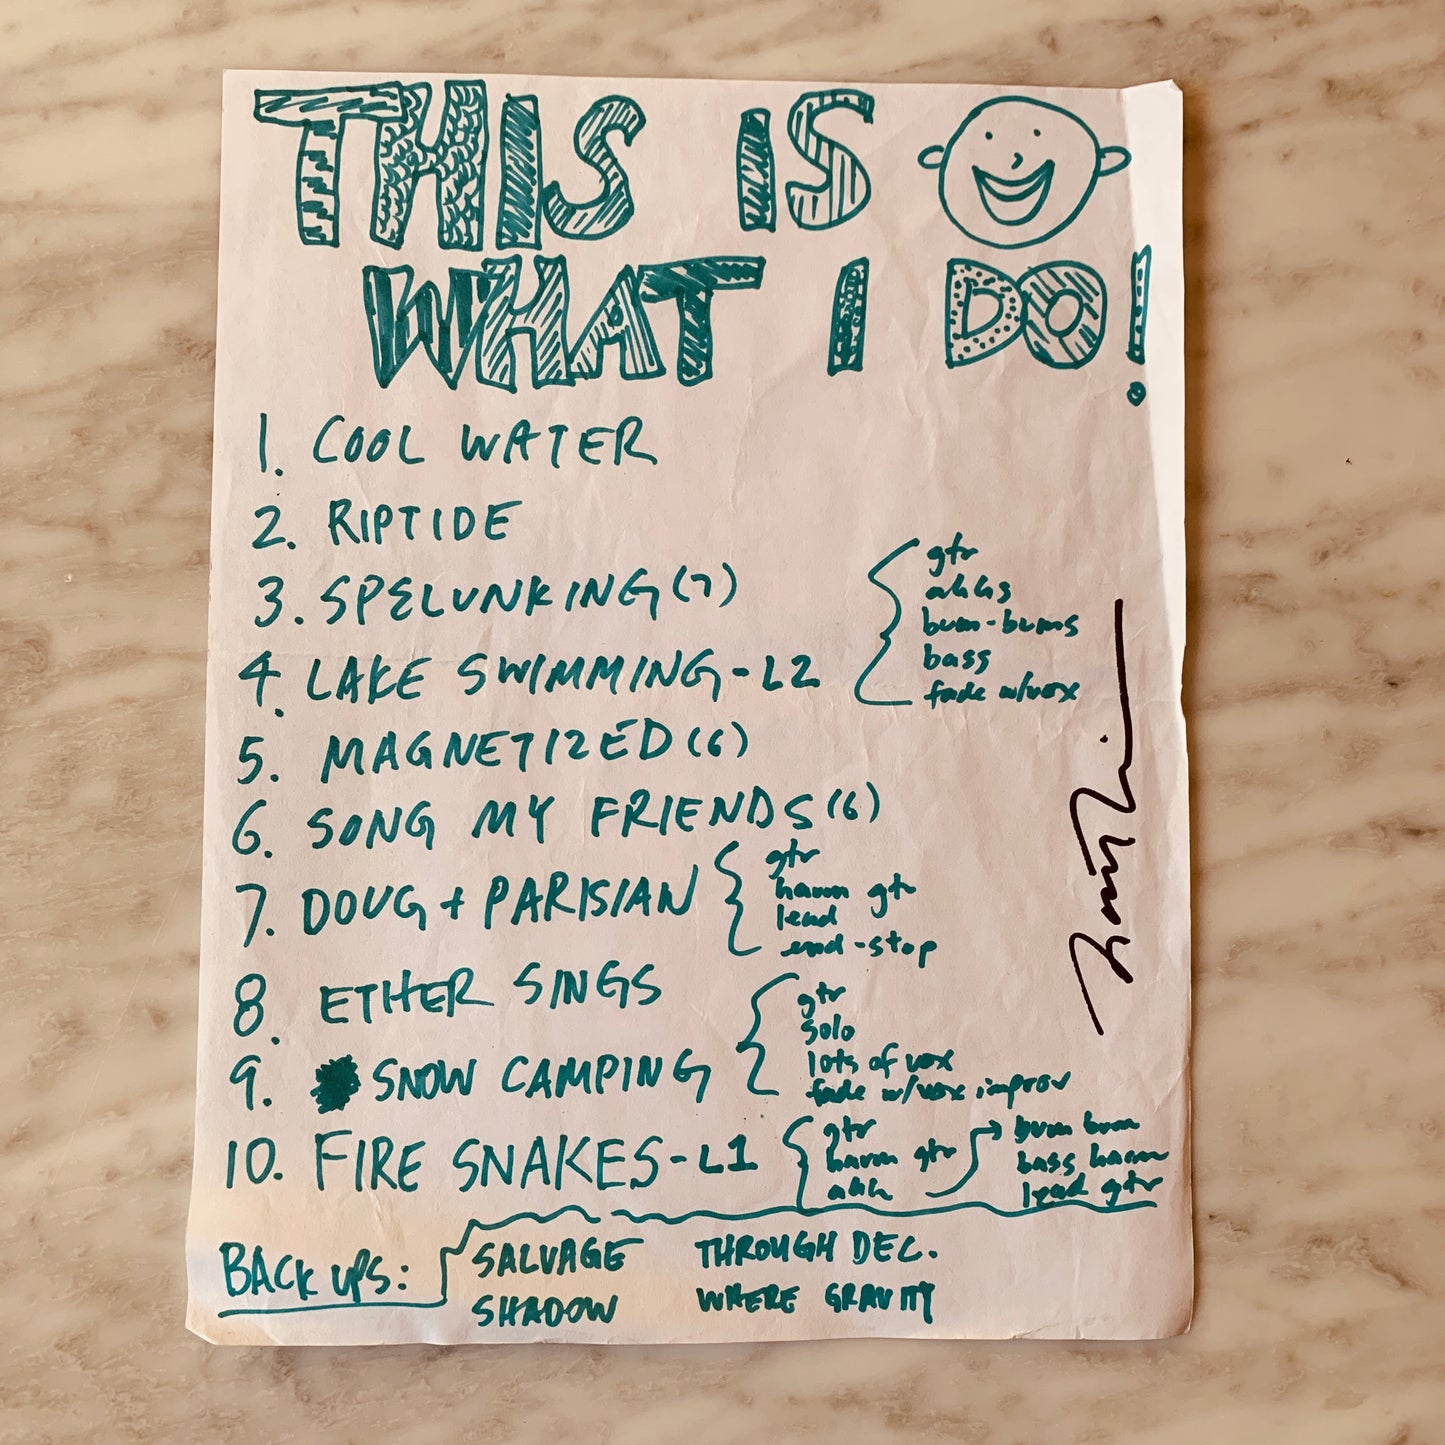 THIS IS
WHAT I DO!
1. COOL WATER
2. RIPTIDE
3. SPELUNKING (7)
4. LAKE SWIMMING - L2
gtr
ahhs
bum-bums
bass
fade w/vox
5. MAGNETIZED (6)
6. SONG MY FRIENDS (6)
7. DOUG + PARISIAN
gtr
harm gtr
lead
end-stop
8. ETHER SINGS
9. SNOW CAMPING
gtr
solo
lots of vox
fade w/vox improv
10. FIRE SNAKES - L1
gtr
harm gtr
ahh
bum bum
bass harm
lead gtr
BACK UPS:
SALVAGE
SHADOW
THROUGH DEC.
WHERE GRAVITY